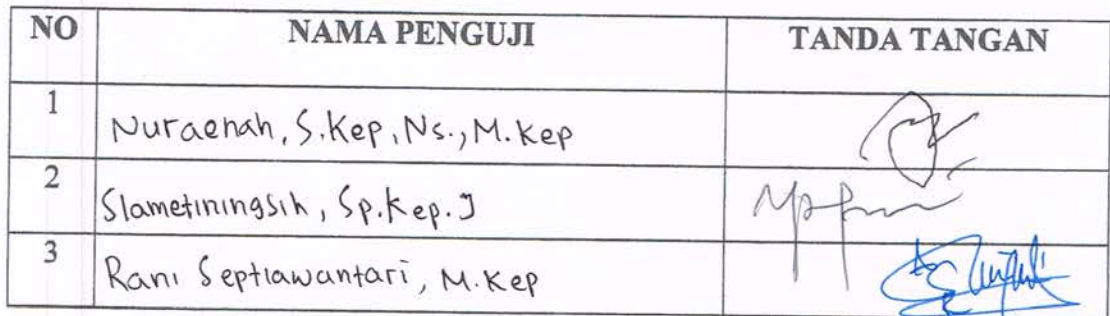 NO NAMA PENGUJI TANDA TANGAN
1 Nuraenah, S.Kep, Ns., M.Kep
2 Slametiningsih, Sp.Kep.J
3 Rani Septiawantari, M.Kep